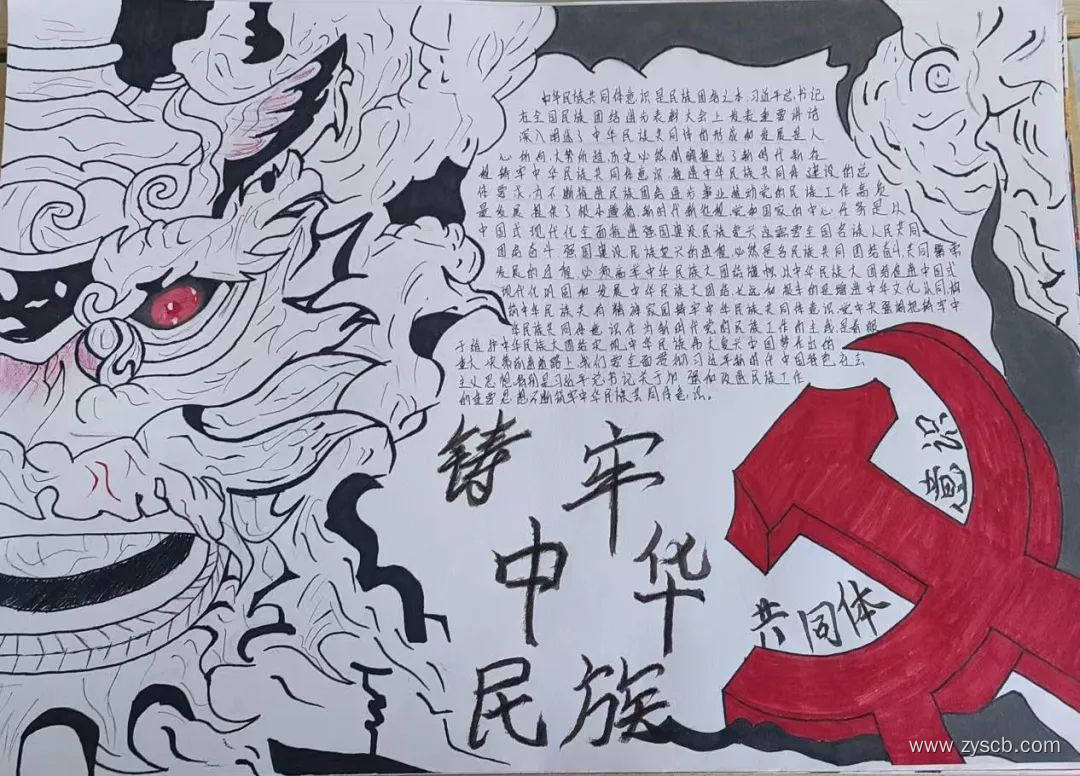 中华民族共同体意识是民族团结之本,习近平总书记
在全国民族团结进步表彰大会上发表重要讲话
深入阐述了中华民族共同体的形成和发展是人
心所向,大势所趋,历史必然阐明提出了新时代新征
程铸牢中华民族共同体意识,推进中华民族共同体建设的总
体要求,为不断推进民族团结进步事业推动党的民族工作高质
量发展 提供了根本遵循,新时代新征程党和国家的中心任务是以
中国式现代化全面推进强国建设民族复兴这需要全国各族人民共同
团结奋斗 强国建设民族复兴的进程,必然是各民族共同团结奋斗共同繁荣
发展的进程 必须画牢中华民族大团结 以中华民族大团结促进中国式
现代化巩固和发展中华民族大团结 长远和根本的是增进中华文化认同构
筑中华民族共有精神家园铸牢中华民族共同体意识 党中央强调把铸牢中
华民族共同体意识作为新时代党的民族工作的主线是着眼
于维护中华民族大团结实现中华民族伟大复兴中国梦作出的
重大决策 道路上 我们要全面贯彻习近平新时代中国特色社会
主义思想 习近平总书记关于加强和改进民族工作
的重要思想不断铸牢中华民族共同体意识。
铸牢
中华
民族
共同体
意识
www.zyscb.com